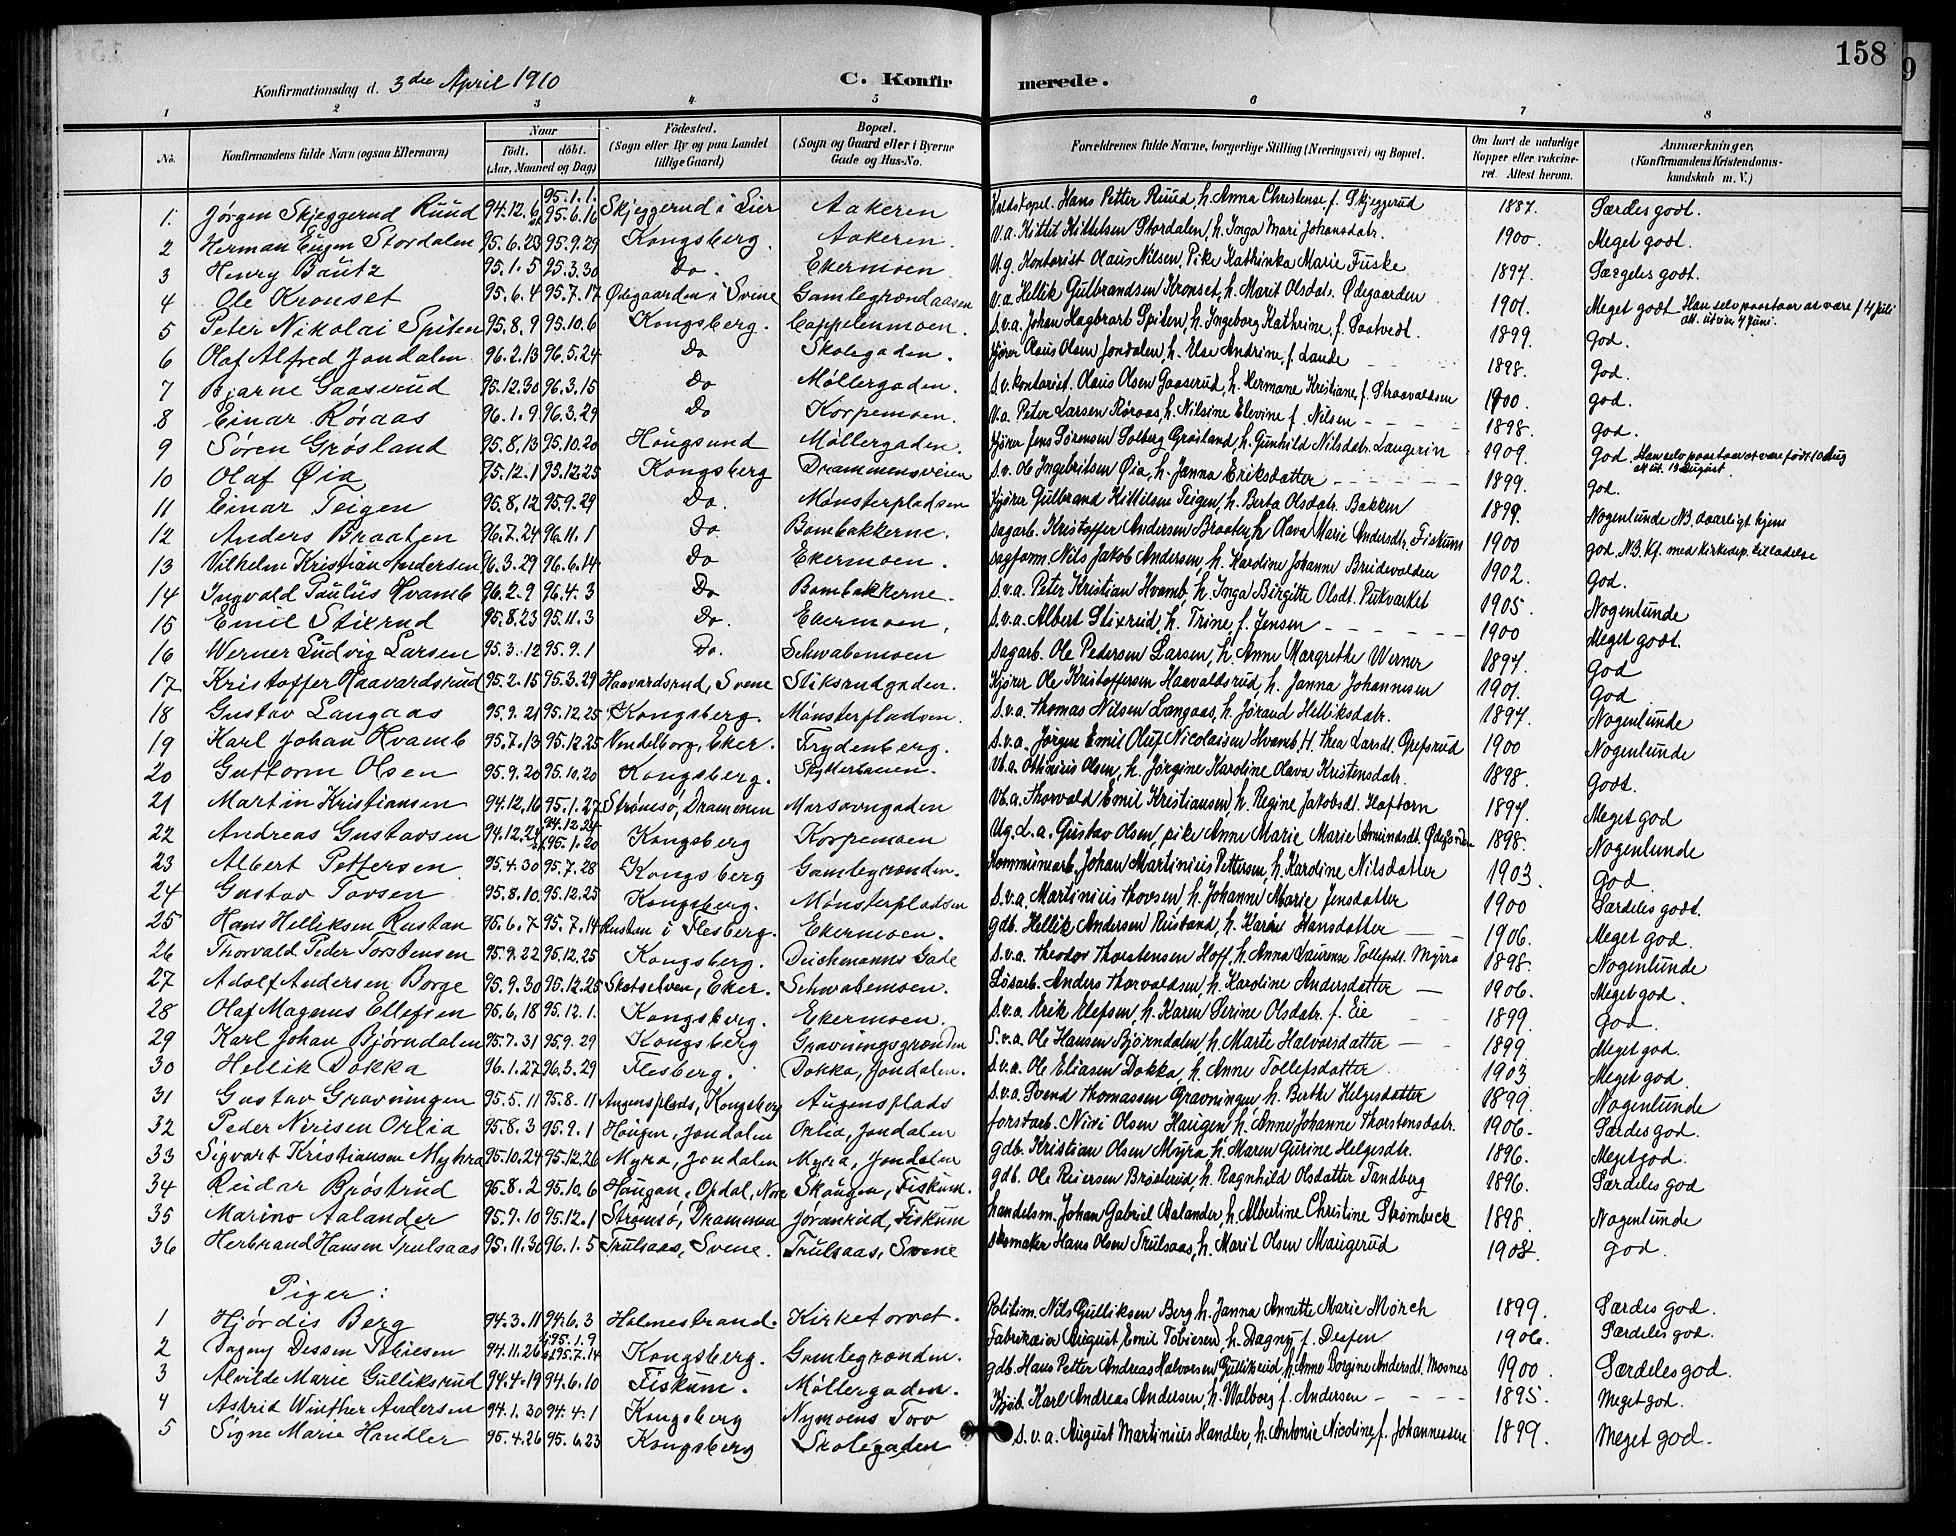 158
Konfirmationsdag d. 3die April 1910 C. Konfirmerede.
1 2 3 4 5 6 7 8
No. Konfirmandens fulde Navn (ogsaa Efternavn) Naar födt. döbt. (Aar, Maaned og Dag) Födested. (Sogn eller By og paa Landet tillige Gaard) Bopæl. (Sogn og Gaard eller i Byerne Gade og Hus-No. Forældrenes fulde Navne, borgerlige Stilling (Næringsvei) og Bopæl. Om havt de naturlige Kopper eller vakcineret. Attest herom. Anmærkninger. (Konfirmandens Kristendomskundskab m. V.)
1. Jørgen Skjeggerud Ruud 94.12.6 95.1.1. 95.6.16 Skjeggerud i Lier Aakeren Hans Petter Ruud, h. Anna Christense f. Skjeggerud 1887. Særdes godt.
2 Herman Eugen Stordalen 95.6.23 95.9.29 Kongsberg. Aakeren. V.a. Kittil Kittelsen Stordalen, h. Inga Mari Johansdatr. 1900. Meget godt.
3 Henry Bautz 95.1.5 95.3.30 Do. Ekermoen Ug. Kontorist Olaus Nilsen, Pike Kathinka Marie Fuske 1897. Særdeles godt.
4 Ole Kronset 95.6.4 95.7.17 Ødegaarden i Svene Gamlegrændaasen V.a. Hellik Gulbrandsen Kronset, h. Marit Olsdatr. Ødegaarden 1901. Meget godt Han selv paastaar at være f. 4 Juli att. utvier 4 Juni.
5 Peter Nikolai Spiten 95.8.9 95.10.6 Kongsberg. Cappelenmoen. S.v.a. Johan Hagbrart Spiten, h. Ingeborg Kathrine, f. Saatvedt. 1899. God.
6 Olaf Alfred Jondalen 96.2.13 96.5.24 Do Skolegaden. Kjører Olaus Olsen Jondalen, h. Else Andrine, f. Lande 1898. God.
7 Bjarne Gaaserud 95.12.30 96.3.15 Do Møllergaden. S.v. kontorist. Olaus Olsen Gaaserud, h. Hermane Kristiane, f. Straavaldsen 1900. god.
8 Einar Røraas 96.1.9 96.3.29 Do Korpemoen. V.a. Peter Larsen Røraas, h. Nilsine Elevine f. Nilsen 1898. god.
9 Søren Grøsland 95.8.13 95.10.20 Hougsund Møllergaden. Kjører Jens Sørensen Solberg Grøsland, h. Gunhild Nilsdatr. Laugerin 1909. God Han selv paastaar at være født 10 Aug att. ut. 13 August.
10 Olaf Øia 95.12.1 95.12.25 Kongsberg Drammensveien S.v. Ole Ingebritsen Øia, h. Janna Eriksdatter 1899. God.
11 Einar Teigen 95.8.12 95.9.29 Do. Mønsterpladsen Kjører Gulbrand Kittilsen Teigen, h. Berta Olsdatr. Bakken 1899. Nogenlunde NB. daarligt hjem
12 Anders Braaten 96.7.24 96.11.1 Do. Bambakkerne. Sagarb. Kristoffer Andersen Braaten, h. Olava Marie Andersdtr. Fiskum 1900 god NB. Kf. med Kirkedep. tilladelse
13 Vilhelm Kristian Andersen 96.3.29 96.6.14 Do Ekermoen. Sagform. Nils Jakob Andersen, h. Karoline Johanne Breidevolden 1902. God.
14 Ingvald Paulus Hvamb 96.2.9 96.4.3 Do Bambakkerne. S.v.a. Peter Kristian Hvamb, h. Inga Birgitte Olsdt. Pukværket 1905. Nogenlunde
15 Emil Stixrud 95.8.23 95.11.3 Do. Ekermoen. S.v.a. Albert Stixrud, h. Trine f. Jensen 1900 Meget godt.
16 Werner Ludvig Larsen 95.3.12 95.9.1 Do. Schwabemoen Sagarb. Ole Pedersen Larsen, h. Anne Margrethe Werner 1897. God
17 Kristoffer Haavardsrud 95.2.15 95.3.29 Haavardsrud, Svene Stiksrudgaden. Kjører Ole Kristoffersen Haavaldsrud, h. Janna Johannesen 1901. God
18 Gustav Langaas 95.9.21 95.12.25 Kongsberg. Mønsterpladsen. S.v.a. Thomas Nilsen Langaas, h. Jørand Helliksdatr. 1897. Nogenlunde
19 Karl Johan Hvamb 95.7.13 95.12.25 Vendelborg, Eker. Frydenberg. S.v.a. Jørgen Emil Oluf Nicolaisen Hvamb, H. Thea Larsdt. Grefsrud 1900 Nogenlunde
20 Guttorm Olsen 95.9.20 95.10.20 Kongsberg. Skytterbanen. Vb.a. Othinius Olsen, h. Jørgine Karoline Olava Kristensdatr. 1898. Godt.
21 Martin Kristiansen 94.12.16 95.1.27 Strømsø, Drammen Marsovngaden Vb.a. Thorvald Emil Kristiansen, h. Regine Jakobsdt. Haftorn 1897. Meget god
22 Andreas Gustavsen 94.12.24 94.12.24 95.1.20 Kongsberg Korpemoen Ug. L.a. Gustav Olsen, pike Anne Marie Marie Amundsdt. 1898. Nogenlunde
23 Albert Pettersen 95.4.30 95.7.28 Kongsberg Gamlegrænden. Kommunearb. Johan Martinius Pettersen, h. Karoline Nilsdatter 1903. God
24 Gustav Tovsen 95.8.10 95.12.25 Kongsberg. Mønsterpladsen S.v.a. Martinius Thovsen, h. Johanne Marie Jensdatter 1900 Særdeles godt.
25 Hans Helliksen Rustan 95.6.7 95.7.14 Rustan i Flesberg. Ekermoen. gdb. Hellik Andersen Rustand, h. Karen Hansdatter 1906. Meget god.
26 Thorvald Peder Torstensen 95.9.22 95.12.25 Kongsberg. Deichmanns Gade S.v.a. Theodor Thorstensen Hoff, h. Anna Laurense Tollefsdt. Myrra 1898. Nogenlunde
27 Adolf Andersen Borge 95.9.30 95.12.25 Skotselven, Eker. Schwabemoen. Løsarb. Anders Thorvaldsen, h. Karoline Andersdatter 1906. Meget god.
28 Olaf Magnus Ellefsen 95.6.18 95.12.1. Kongsberg. Ekermoen. S.v.a. Erik Elefsen, h. Karen Serine Olsdatr. f. Eie 1899. God.
29 Karl Johan Bjørndalen 95.7.31 95.9.29 Kongsberg Gravningsgrænden S.v.a. Ole Hansen Bjørndalen, h. Marte Halvorsdatter 1899. Meget god.
30 Hellik Dokka 96.1.27 96.3.29 Flesberg. Dokka, Jondalen. S.v.a. Ole Eliasen Dokka, h. Anne Tollefsdatter 1903 Meget god.
31 Gustav Gravningen 95.5.11 95.8.11 Augensplads, Kongsberg Augensplads S.v.a. Svend Thomassen Gravningen, h. Berthe Helgesdatter 1899. Nogenlunde
32 Peder Nirisen Orlia 95.8.3 95.9.1 Haugen, Jondalen Orlia, Jondalen forstarb. Niri Olsen Haugen, h. Anne Johanne Thorstensdatr. 1906. Særdes god.
33 Sigvart Kristiansen Myhra 95.10.24 95.12.26 Myra, Jondalen Myra, Jondalen gdb. Kristian Olsen Myra, h. Maren Gurine Helgesdtr. 1896. Meget god.
34 Reidar Brøstrud 95.8.2 95.10.6 Haugan, Opdal, Nore Skaugen, Fiskum. gdb. Ole Reiersen Brøstrud, h. Ragnhild Olsdatter Tandberg 1896. Særdeles god
35 Marino Aalander 95.9.10 95.12.1 Strømsø, Drammen Jøranrud, Fiskum handelsm. Johan Gabriel Aalander, h. Albertine Christine Strømbeck 1898. Nogenlunde
36 Herbrand Hansen Trulsaas 95.11.30 96.1.5 Trulsaas, Svene. Trulsaas, Svene Skomaker Hans Olsen Trulsaas, h. Marit Olsen Maugerud 1908. god.
Piger:
1 Hjørdis Berg 94.3.11 94.6.3 Holmestrand. Kirketorvet. Politim. Nils Gulliksen Berg, h. Janna Annette Marie Mørch 1899. Særdes god.
2 Dagny Dessen Tobiesen 94.11.26 95.1.9 95.7.14 Kongsberg. Gamlegrenden. Fabrikeier August Emil Tobiesen, h. Dagny f. Dessen 1906. Særdeles god.
3 Alvilde Marie Gulliksrud 94.4.19 94.6.10 Fiskum. Møllergaden. gdb. Hans Petter Andreas Halvorsen Gulliksrud, h. Anne Borgine Andersdt. Mosnes 1900. Særdeles god.
4 Astrid Winther Andersen 94.1.30 94.4.1 Kongsberg Nymoens Torv Kjøb. Karl Andreas Andersen, h. Valborg f. Andersen 1895. Meget god.
5 Signe Marie Handler 95.4.26 95.6.23 Kongsberg Skolegaden S.v.a. August Martinius Handler, h. Antonie Nicoline, f. Johannessen 1899. Meget god.